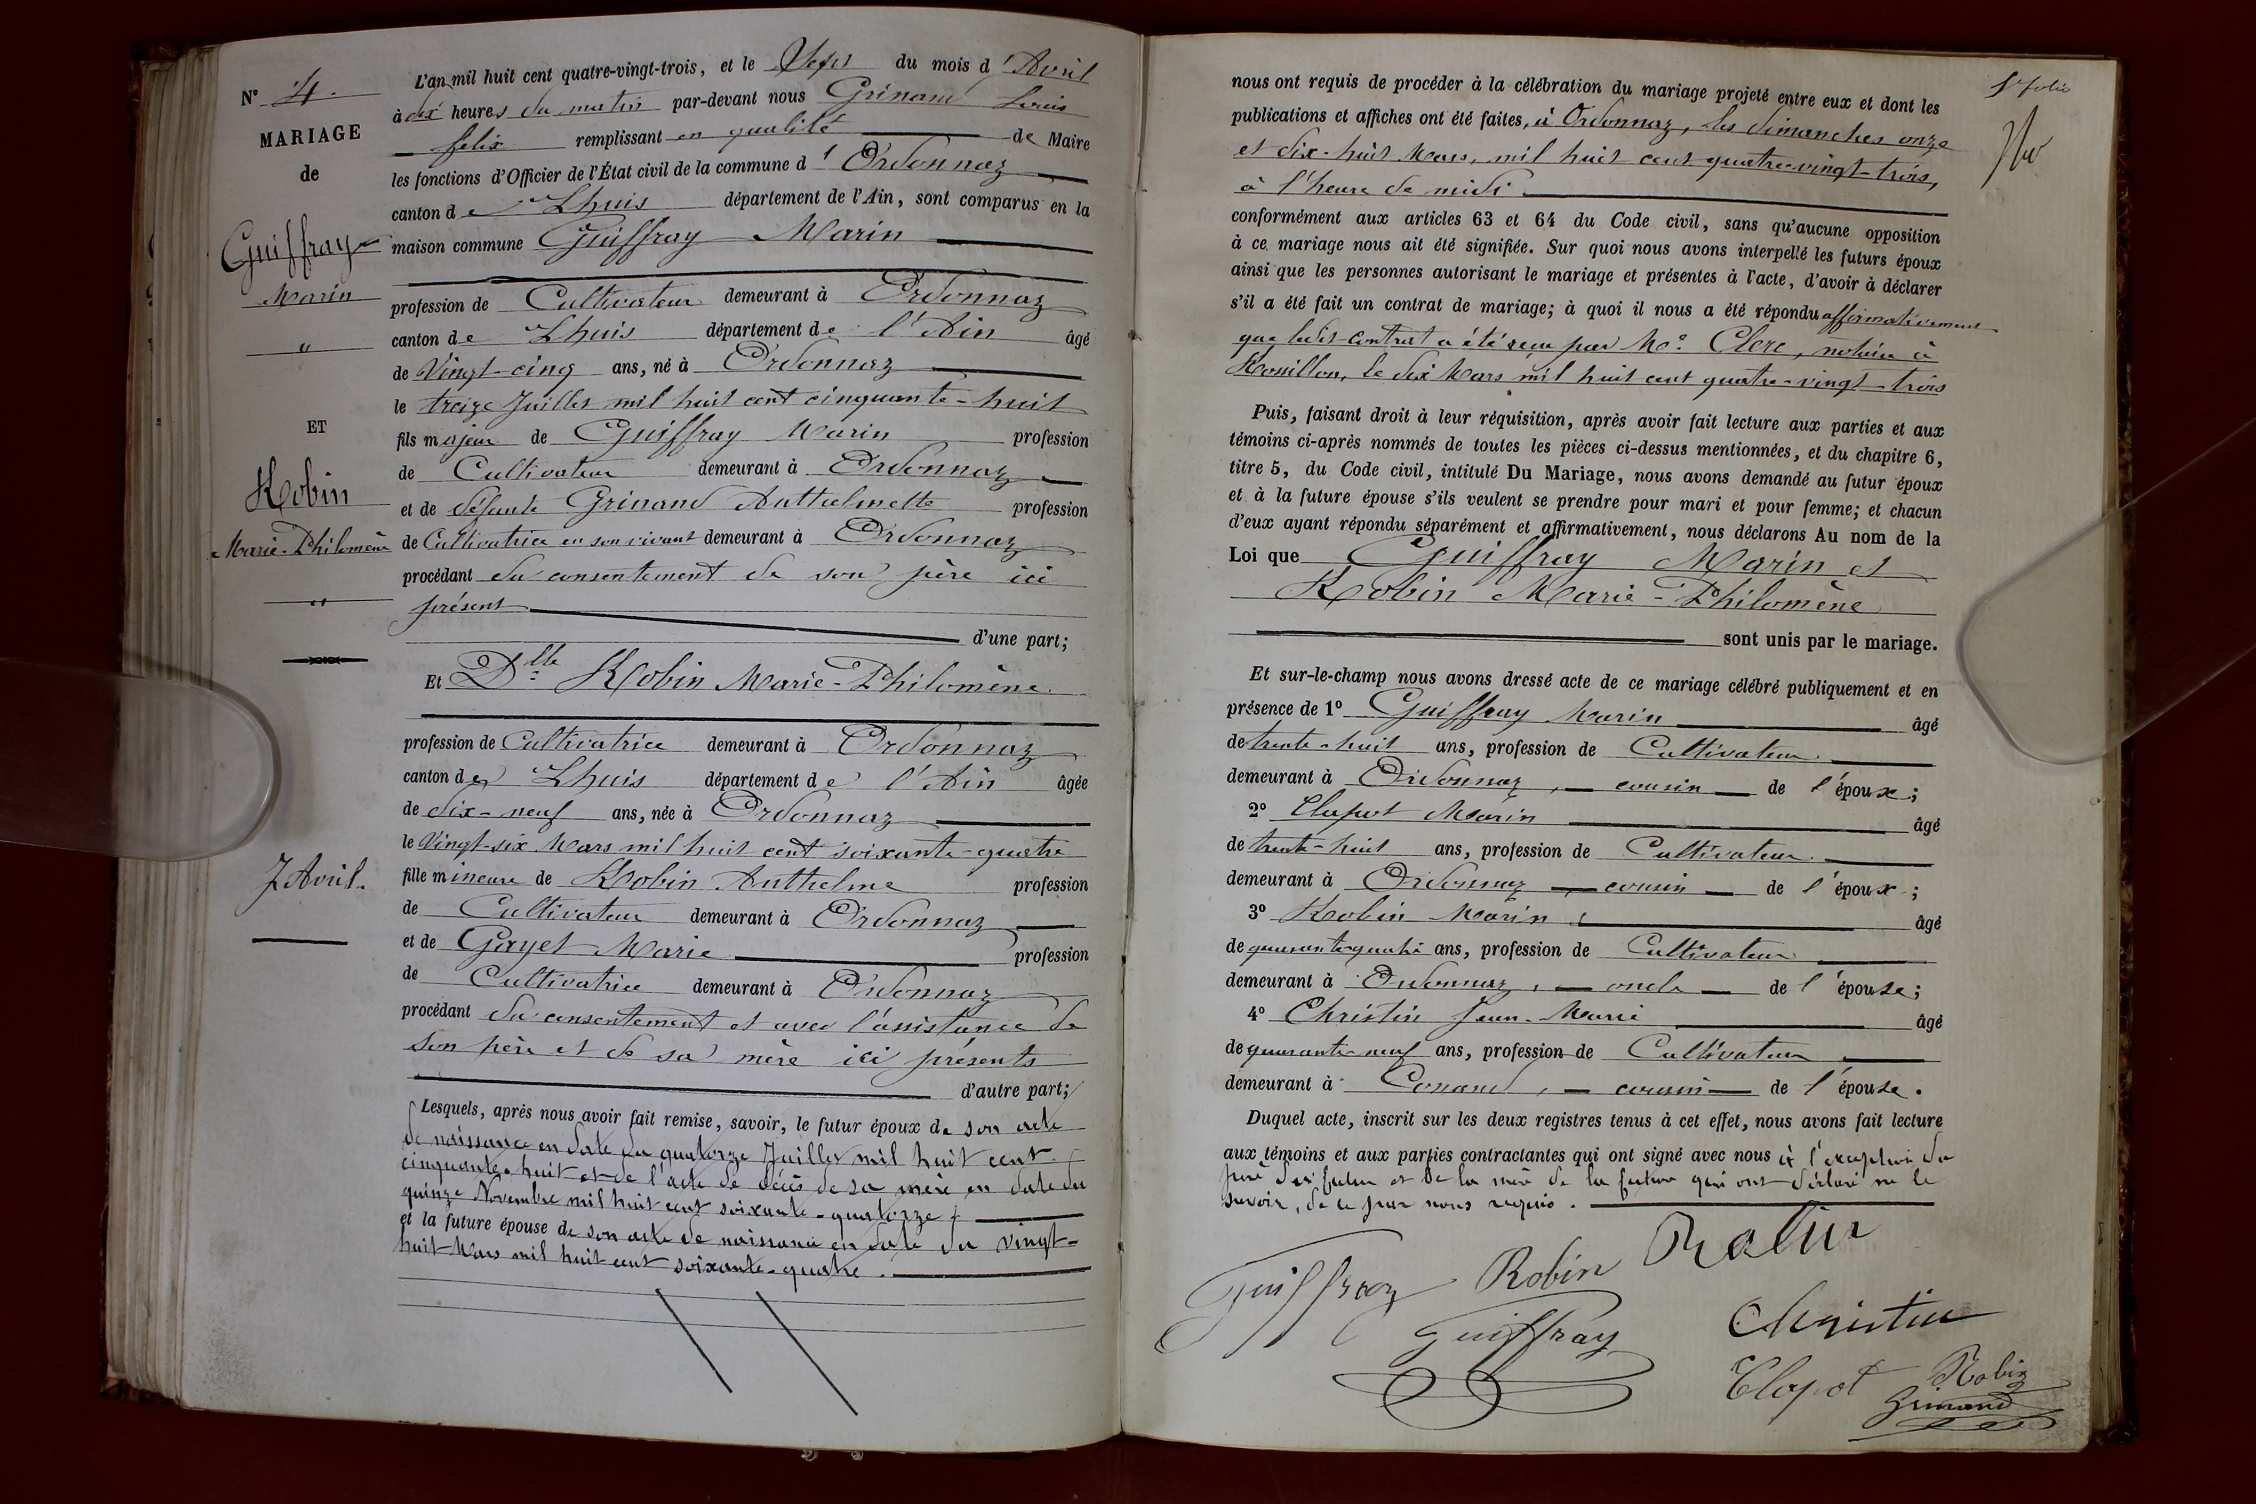 N° 4.
MARIAGE
de
Guiffray
Marin
"
ET
Robin
Marie-Philomène
"
7 Avril.
L'an mil huit cent quatre-vingt-trois, et le Sept du mois d'Avril
à dix heures du matin par-devant nous Grinand Louis
felix remplissant en qualité de Maire
les fonctions d'Officier de l'État civil de la commune d'Ordonnaz
canton de Lhuis département de l'Ain, sont comparus en la
maison commune Guiffray Marin
profession de Cultivateur demeurant à Ordonnaz
canton de Lhuis département de l'Ain âgé
de Vingt-cinq ans, né à Ordonnaz
le treize Juillet mil huit cent cinquante-huit
fils majeur de Guiffray Marin profession
de Cultivateur demeurant à Ordonnaz
et de défunte Grinand Anthelmette profession
de Cultivatrice en son vivant demeurant à Ordonnaz
procédant du consentement de son père ici
présent
d'une part;
Et Dlle Robin Marie-Philomène
profession de Cultivatrice demeurant à Ordonnaz
canton de Lhuis département de l'Ain âgée
de dix-neuf ans, née à Ordonnaz
le Vingt-six Mars mil huit cent soixante-quatre
fille mineure de Robin Anthelme profession
de Cultivateur demeurant à Ordonnaz
et de Gayet Marie profession
de Cultivatrice demeurant à Ordonnaz
procédant du consentement et avec l'assistance de
son père et de sa mère ici présents
d'autre part;
Lesquels, après nous avoir fait remise, savoir, le futur époux de son acte
de naissance en date du quatorze Juillet mil huit cent
cinquante-huit et de l'acte de décès de sa mère en date du
quinze Novembre mil huit cent soixante-quatorze
et la future épouse de son acte de naissance en date du vingt-
huit Mars mil huit cent soixante-quatre.
1er folio
nous ont requis de procéder à la célébration du mariage projeté entre eux et dont les
publications et affiches ont été faites, à Ordonnaz, les dimanches onze
et dix-huit Mars, mil huit cent quatre-vingt-trois,
à l'heure de midi.
conformément aux articles 63 et 64 du Code civil, sans qu'aucune opposition
à ce mariage nous ait été signifiée. Sur quoi nous avons interpellé les futurs époux
ainsi que les personnes autorisant le mariage et présentes à l'acte, d'avoir à déclarer
s'il a été fait un contrat de mariage; à quoi il nous a été répondu affirmativement
que ledit contrat a été reçu par Me Clerc, notaire à
Rossillon, le dix Mars mil huit cent quatre-vingt-trois
Puis, faisant droit à leur réquisition, après avoir fait lecture aux parties et aux
témoins ci-après nommés de toutes les pièces ci-dessus mentionnées, et du chapitre 6,
titre 5, du Code civil, intitulé Du Mariage, nous avons demandé au futur époux
et à la future épouse s'ils veulent se prendre pour mari et pour femme; et chacun
d'eux ayant répondu séparément et affirmativement, nous déclarons Au nom de la
Loi que Guiffray Marin et
Robin Marie-Philomène
sont unis par le mariage.
Et sur-le-champ nous avons dressé acte de ce mariage célébré publiquement et en
présence de 1° Guiffray Marin âgé
de trente-huit ans, profession de Cultivateur
demeurant à Ordonnaz, cousin de l'époux;
2° Clapot Marin âgé
de trente-huit ans, profession de Cultivateur
demeurant à Ordonnaz cousin de l'époux;
3° Robin Marin, âgé
de quarante-quatre ans, profession de Cultivateur
demeurant à Ordonnaz, oncle de l'épouse;
4° Christin Jean-Marie âgé
de quarante-neuf ans, profession de Cultivateur
demeurant à Conand, cousin de l'épouse.
Duquel acte, inscrit sur les deux registres tenus à cet effet, nous avons fait lecture
aux témoins et aux parties contractantes qui ont signé avec nous à l'exception du
père du futur et de la mère de la future qui ont déclaré ne le
savoir, de ce par nous requis.
Guiffray Robin Robin
Guiffray Christin
Clapot Robin
Grinand